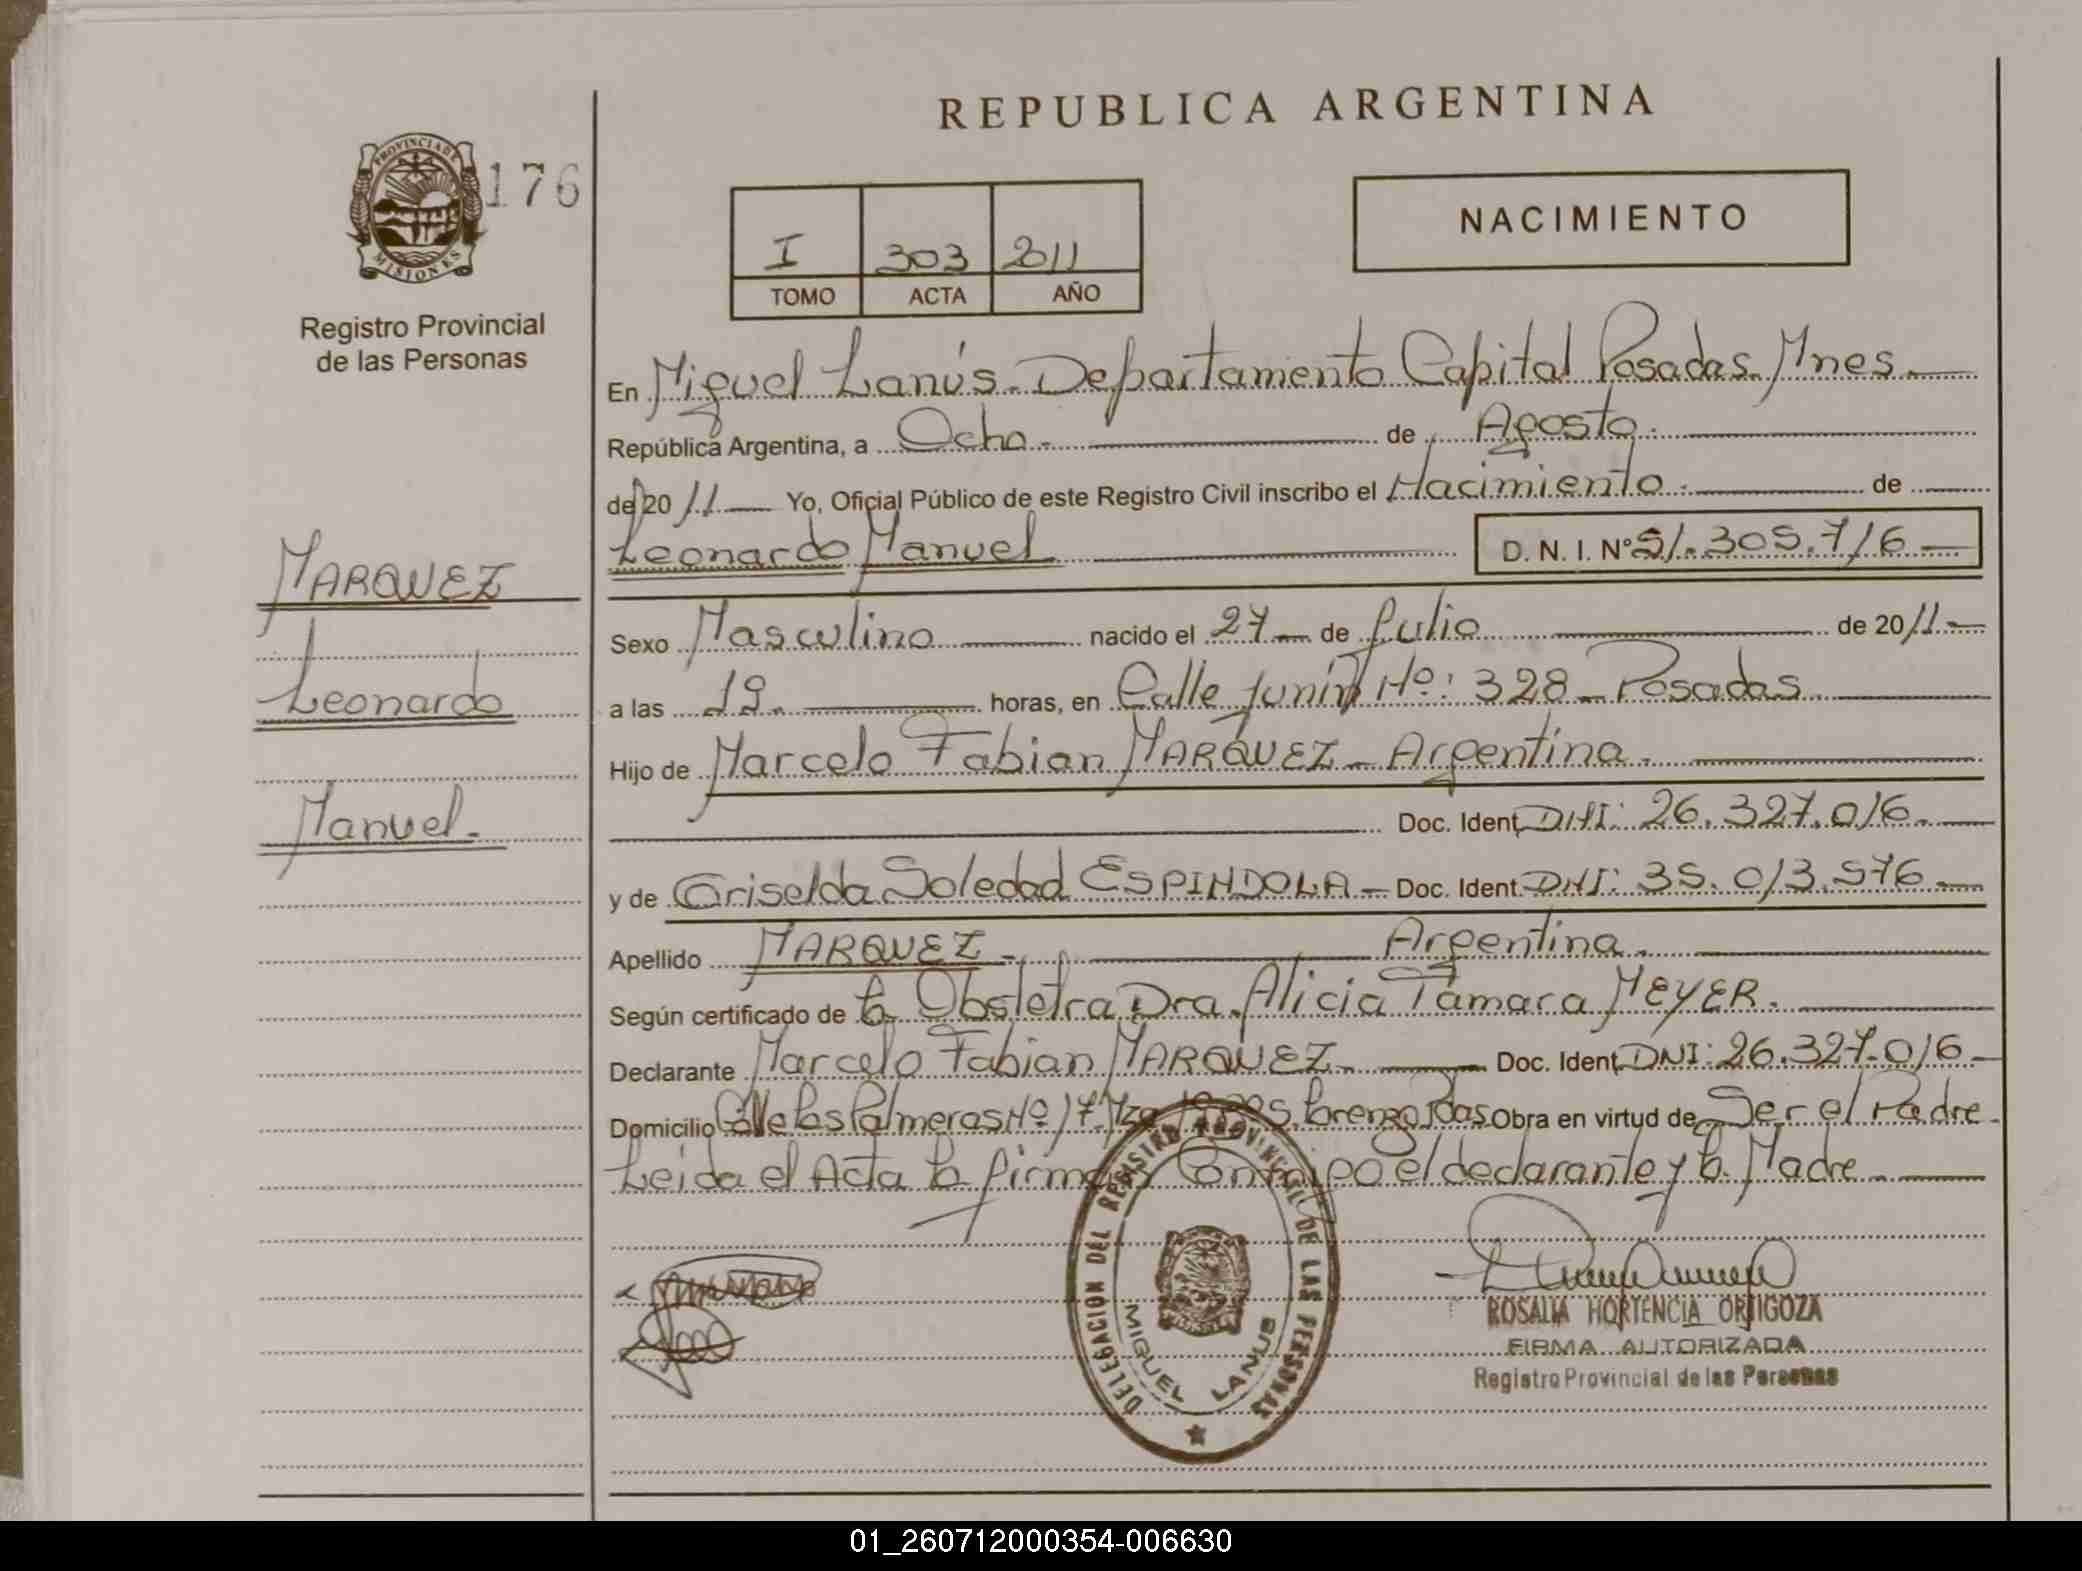 REPUBLICA ARGENTINA
PROVINCIA DE
MISIONES
176
Registro Provincial
de las Personas
I 303 2011
TOMO ACTA AÑO
NACIMIENTO
En Miguel Lanús - Departamento Capital Posadas. Mnes
República Argentina, a Ocho.- de Agosto.
de 20 11 Yo, Oficial Público de este Registro Civil inscribo el Nacimiento. de
Leonardo Manuel D. N. I. N° 51.305.716
MARQUEZ
Leonardo
Manuel.
Sexo Masculino nacido el 27 de Julio de 20 11
a las 19. horas, en Calle Junín Nº: 328 - Posadas
Hijo de Marcelo Fabian MARQUEZ - Argentina.
Doc. Ident. DNI: 26.327.016.
y de Griselda Soledad ESPINDOLA - Doc. Ident. DNI: 35.013.576
Apellido MARQUEZ - Argentina.
Según certificado de la Obstetra Dra. Alicia Tamara MEYER.
Declarante Marcelo Fabian MARQUEZ. Doc. Ident. DNI: 26.327.016
Domicilio Calle Las Palmeras Nº 17. Mza Lorenzo Pdas Obra en virtud de Ser el Padre
Leida el Acta la firman Conmigo el declarante y la Madre
DELEGACION DEL REGISTRO PROVINCIAL DE LAS PERSONAS
MIGUEL LANUS
ROSALIA HORTENCIA ORTIGOZA
FIRMA AUTORIZADA
Registro Provincial de las Personas
01_260712000354-006630